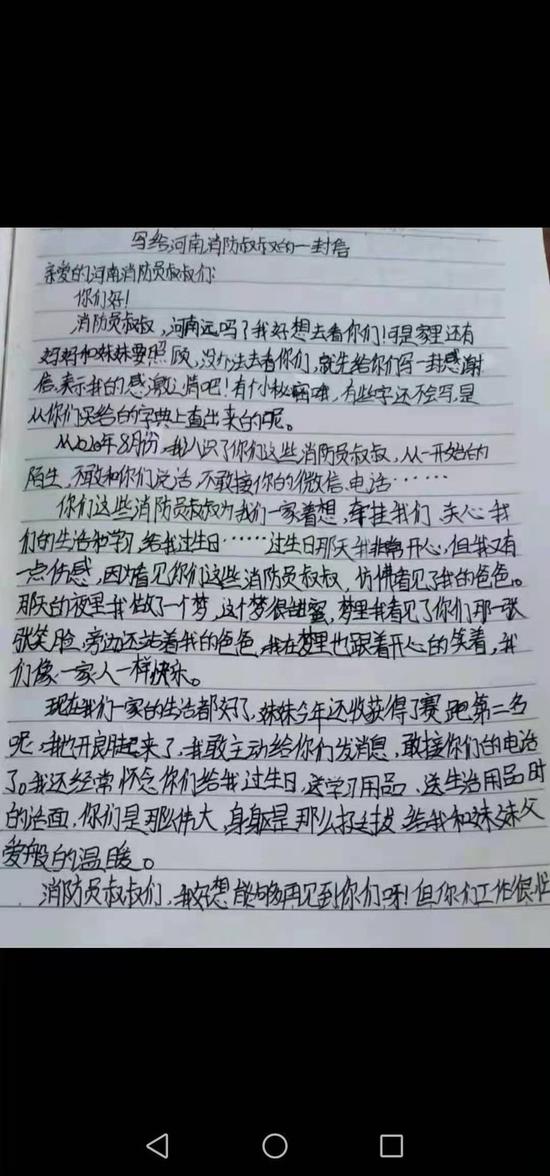 写给河南消防叔叔的一封信
亲爱的河南消防员叔叔们:
你们好!
消防员叔叔,河南远吗?我好想去看你们!可是家里还有
妈妈和妹妹要照顾,没办法去看你们,就先给你们写一封感谢
信,表示我的感激之情吧!有个小秘密哦,有些字还不会写,是
从你们买给的字典上查出来的呢。
从2020年8月份,我认识了你们这些消防员叔叔,从一开始的
陌生,不敢和你们说话,不敢接你的微信、电话……
你们这些消防员叔叔为我们一家着想,牵挂我们,关心我
们的生活和学习,给我过生日……过生日那天我非常开心,但我又有
一点伤感,因为看见你们这些消防员叔叔,仿佛看见了我的爸爸。
那天的夜里我做了一个梦,这个梦很甜蜜,梦里我看见了你们那一张
张笑脸,旁边还站着我的爸爸,我在梦里也跟着开心的笑着,我
们像一家人一样快乐。
现在我们一家的生活都好了,妹妹今年还收获得了赛跑第二名
呢,我也开良起来了,我敢主动给你们发消息,敢接你们的电话
了。我还经常怀念你们给我过生日,送学习用品、送生活用品时
的画面,你们是那么伟大,身躯是那么挺拔,给我和妹妹父
爱般的温暖。
消防员叔叔们,我好想能够再见到你们呀!但你们工作很忙